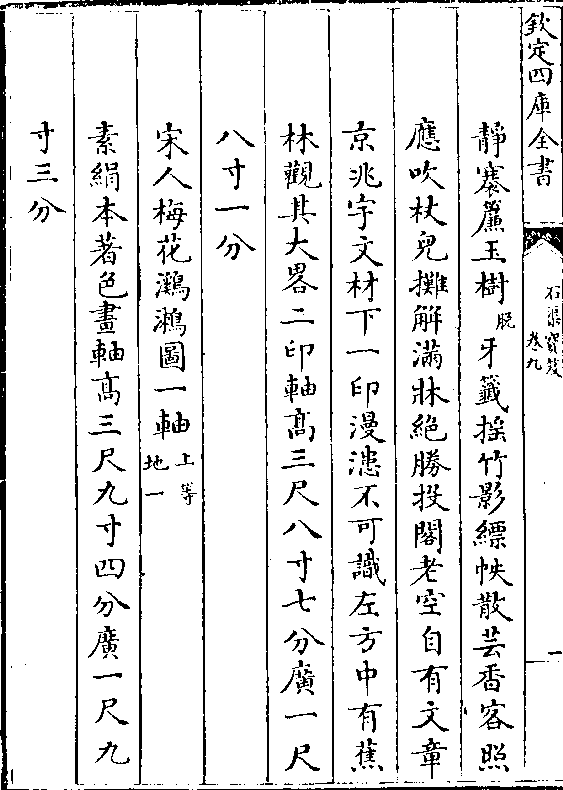 欽定四庫全書
石渠寶笈
卷九
一
靜褰簾玉樹脱牙籤揺竹影縹帙散芸香客照
應吹杖兒攤解滿牀絶勝投閣老空自有文章
京兆宇文材下一印漫漶不可識左方中有蕉
林觀其大畧二印軸髙三尺八寸七分廣一尺
八寸一分
宋人梅花鸂鶒圖一軸上等地一
素絹本著色畫軸髙三尺九寸四分廣一尺九
寸三分